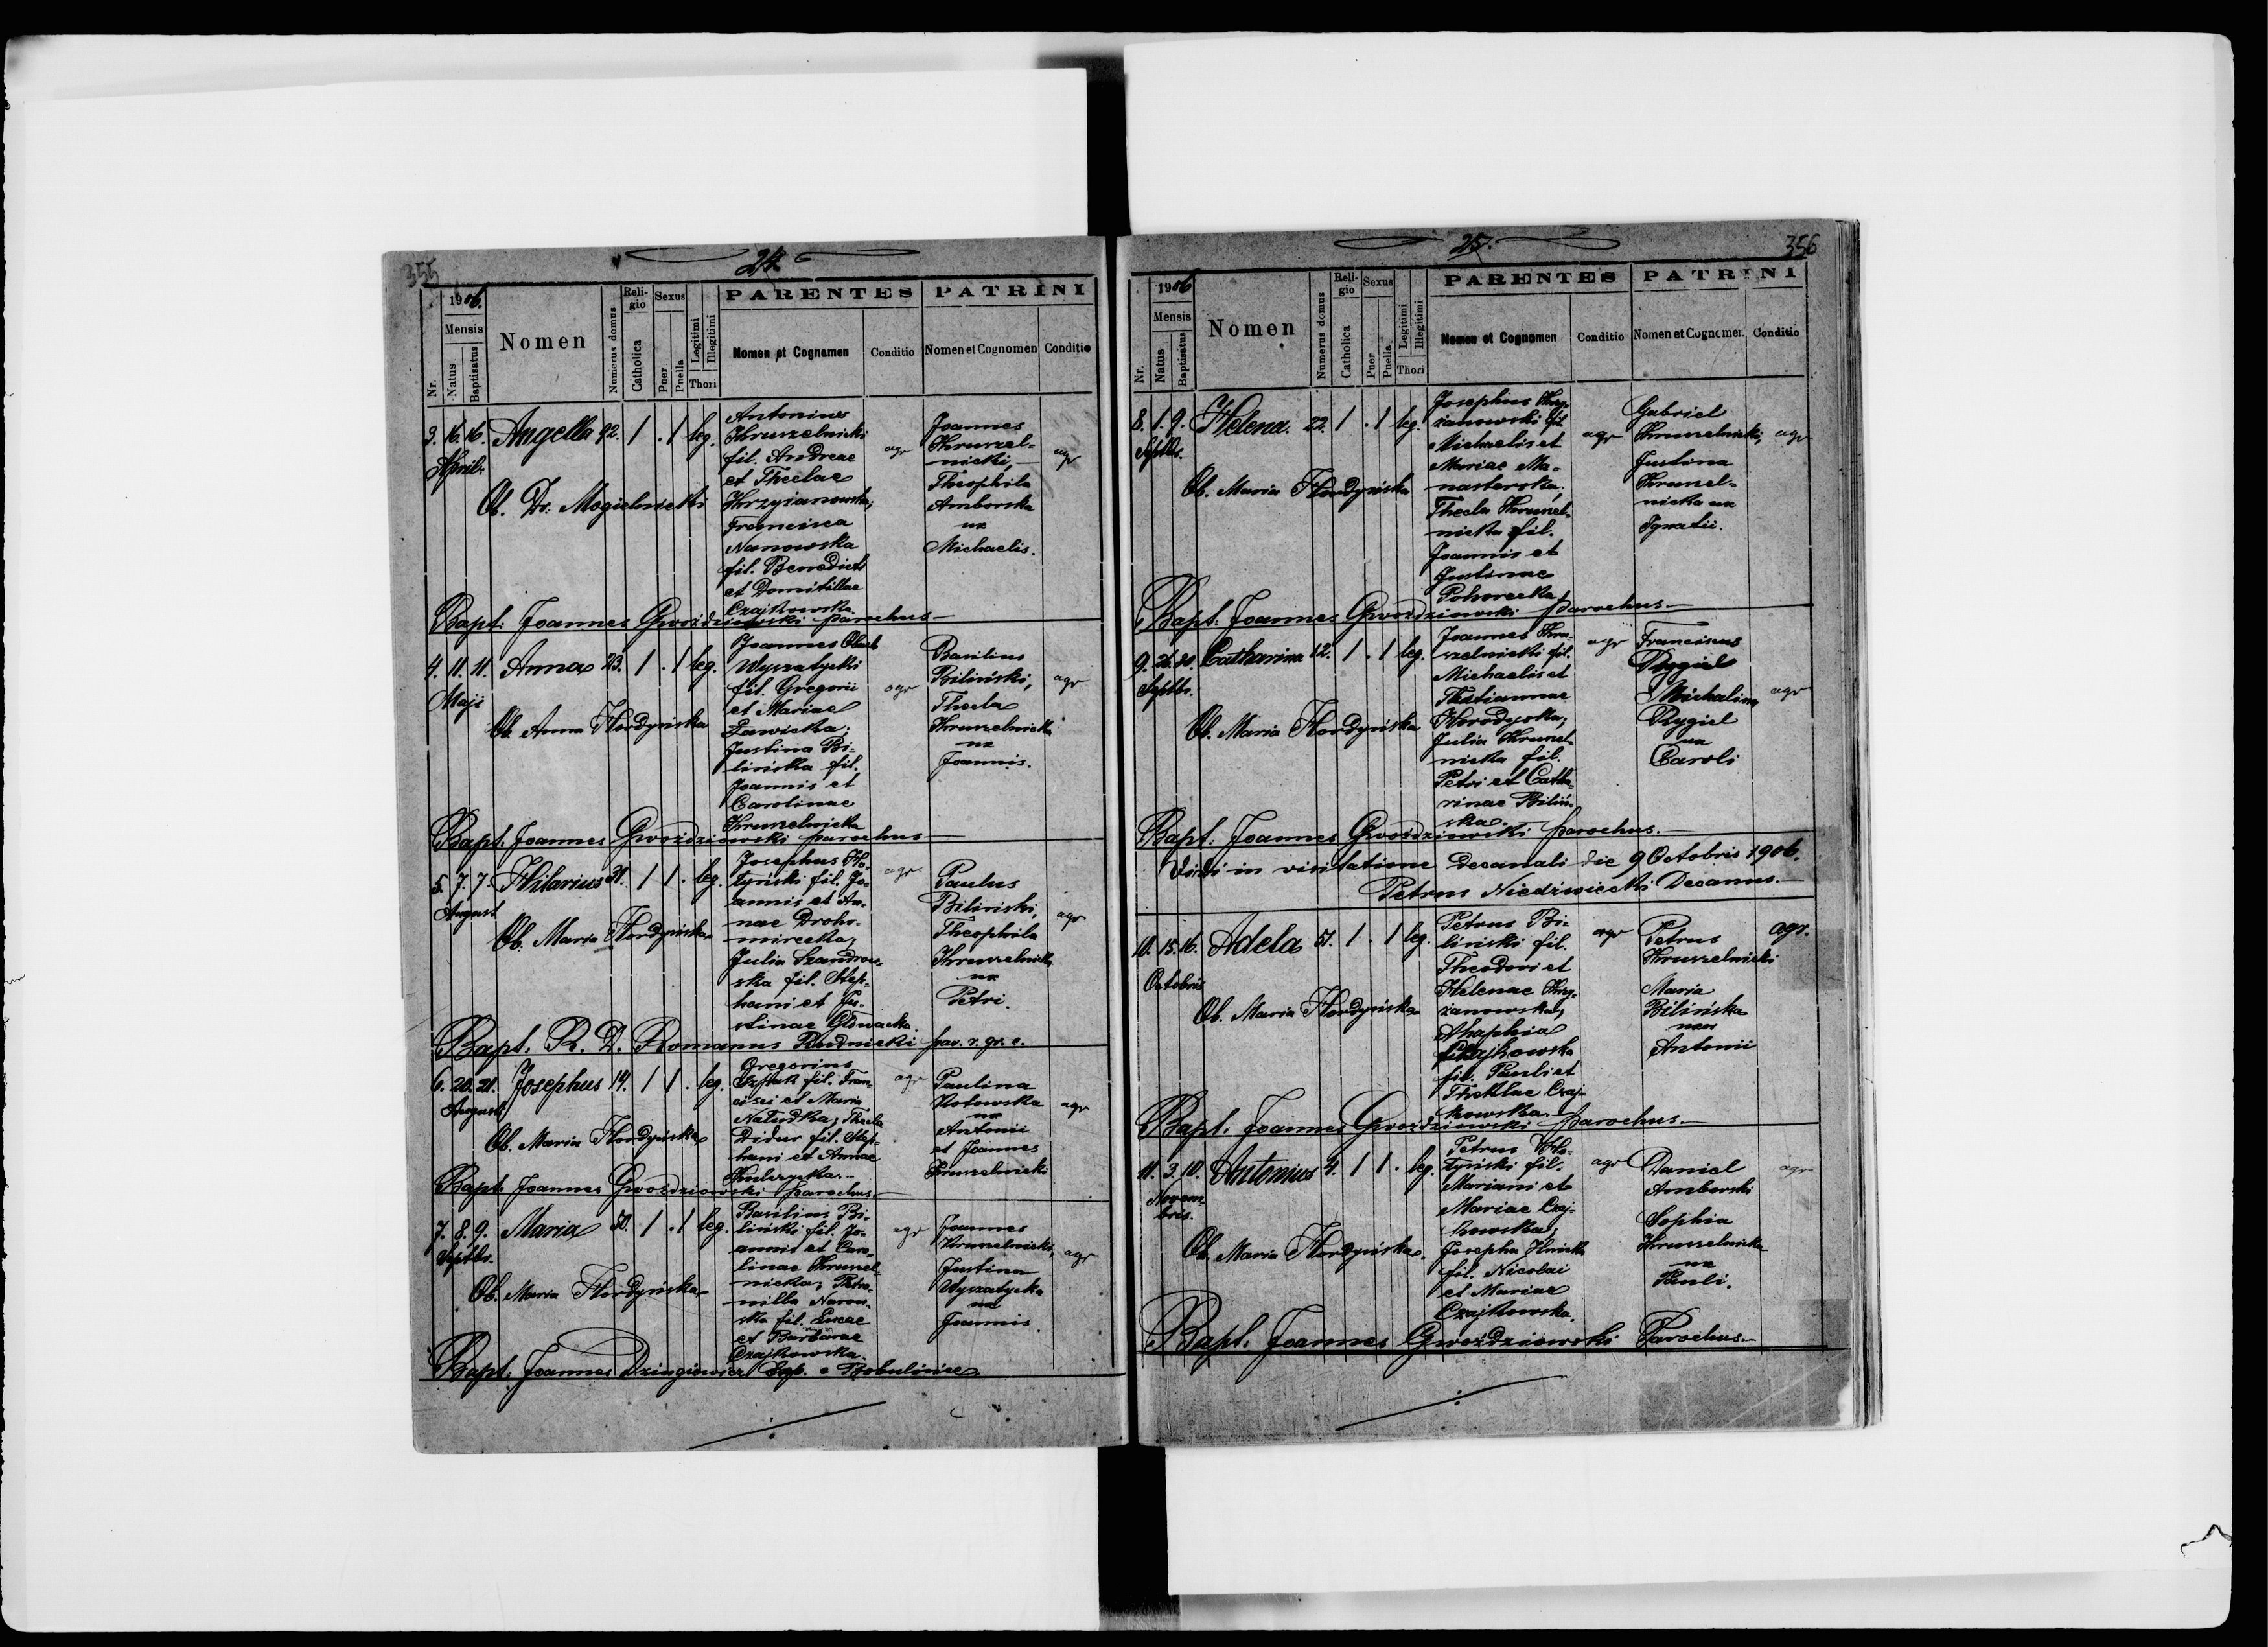 355
24.
1906.
Mensis
Nr.
Natus
Baptisatus
Nomen
Numerus domus
Religio
Catholica
Sexus
Puer
Puella
Legitimi
Illegitimi
Thori
PARENTES
Nomen et Cognomen
Conditio
PATRINI
Nomen et Cognomen
Conditio
3. 16. 16. Angella 92. 1 . 1 leg.
April.
Ob. Dr. Mogielnicki
Antonius
Kruszelnicki
fil. Andreae
et Theclae
Krzyżanowska;
Francisca
Nanowska
fil. Benedicti
et Domitillae
Czajkowska.
agr
Joannes
Kruszel-
nicki,
Theophila
Amborska
ux
Michaelis.
agr
Bapt. Joannes Gwoździowski parochus
4. 11. 11. Anna 23. 1 . 1 leg.
Maji
Ob. Anna Hordyńska
Joannes
Wyszatycki
fil. Gregorii
et Mariae
Ławicka;
Justina Bi-
lińska fil.
Joannis et
Carolinae
Kruszelnicka
agr
Basilius
Biliński,
Thecla
Kruszelnicka
ux
Joannis.
agr
Bapt. Joannes Gwoździowski parochus
5. 7. 7. Hilarius 31. 1 1 . leg.
August
Ob. Maria Hordyńska
Josephus Ho-
tyński fil. Jo-
annis et An-
nae Droho-
mirecka;
Julia Szandrow-
ska fil. Step-
hani et Ju-
stinae Głowacka.
agr
Paulus
Biliński,
Theophila
Kruszelnicka
ux
Petri.
agr
Bapt. R. D. Romanus Rudnicki par. r. gr. c.
6. 20. 21. Josephus 14. 1 1 . leg.
Augusti
Ob. Maria Hordyńska
Gregorius
fil. Fran-
cisci et Maria
Thecla
Didur fil. Step-
hani et Annae
agr
Paulina
Kotowska
ux
Antonii
et Joannes
Kruszelnicki
agr
Bapt. Joannes Gwoździowski parochus.
7. 8. 9. Maria 50. 1 . 1 leg.
Septbr.
Ob. Maria Hordyńska
Basilius Bi-
liński fil. Jo-
annis et Caro-
linae Kruszel-
nicka; Petro-
nilla Nanow-
ska fil. Lucae
et Barbarae
Czajkowska.
agr
Joannes
Kruszelnicki,
Justina
Wyszatycka
ux
Joannis.
agr
Bapt. Joannes Dzingiewicz Cap. e Bobulińce
356
25.
1906
Mensis
Nr.
Natus
Baptisatus
Nomen
Numerus domus
Religio
Catholica
Sexus
Puer
Puella
Legitimi
Illegitimi
Thori
PARENTES
Nomen et Cognomen
Conditio
PATRINI
Nomen et Cognomen
Conditio
8. 1. 9. Helena. 22. 1 . 1 leg.
Septbr.
Ob. Maria Hordyńska
Josephus Krzy-
żanowski fil
Michaelis et
Mariae Ma-
nasterska,
Thecla Kruszel-
nicka fil.
Joannis et
Justinae
Pohorecka
agr
Gabriel
Kruszelnicki,
Justina
Kruszel-
nicka ux
Ignatii.
agr
Bapt. Joannes Gwoździowski parochus
9. 26. 30. Catharina 12. 1 . 1 leg.
Septbr.
Ob. Maria Hordyńska
Joannes Kru-
szelnicki fil.
Michaelis et
Tatiannae
Horodyska;
Julia Kruszel-
nicka fil.
Petri et Catha-
rinae Biliń-
ska.
agr
Franciscus
Rygiel
Michalina
Rygiel
ux
Caroli
agr
Bapt. Joannes Gwoździowski parochus.
Vidi in visitatione Decanali die 9 Octobris 1906.
Petrus Niedźwiecki Decanus.
10. 15. 16. Adela 51. 1 . 1 leg.
Octobris
Ob. Maria Hordyńska
Petrus Bi-
liński fil.
Theodori et
Helenae Krzy-
żanowska;
Ahaphia
Czajkowska
fil. Pauli et
Theklae Czaj-
kowska.
agr
Petrus
Kruszelnicki
Maria
Bilińska
uxor
Antonii
agr.
Bapt. Joannes Gwoździowski parochus
11. 3. 10. Antonius 4. 1 1 . leg.
Novem-
bris.
Ob. Maria Hordyńska.
Petrus Ho-
tyński fil.
Mariani et
Mariae Czaj-
kowska;
Josepha Ilnicka
fil. Nicolai
et Mariae
Czajkowska.
agr
Daniel
Amborski
Sophia
Kruszelnicka
ux
Pauli.
agr
Bapt. Joannes Gwoździowski Parochus.